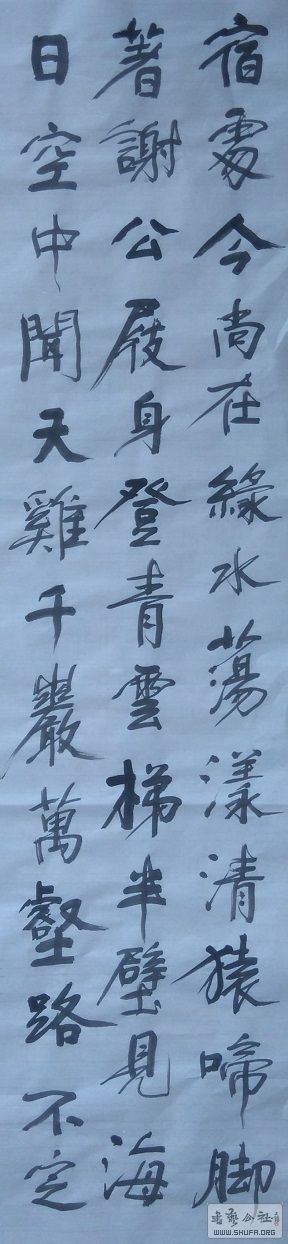 宿處今尚在綠水蕩漾清猿啼脚
著謝公屐身登青雲梯半壁見海
日空中聞天雞千巖萬壑路不定
書藝公社
WWW.SHUFA.ORG